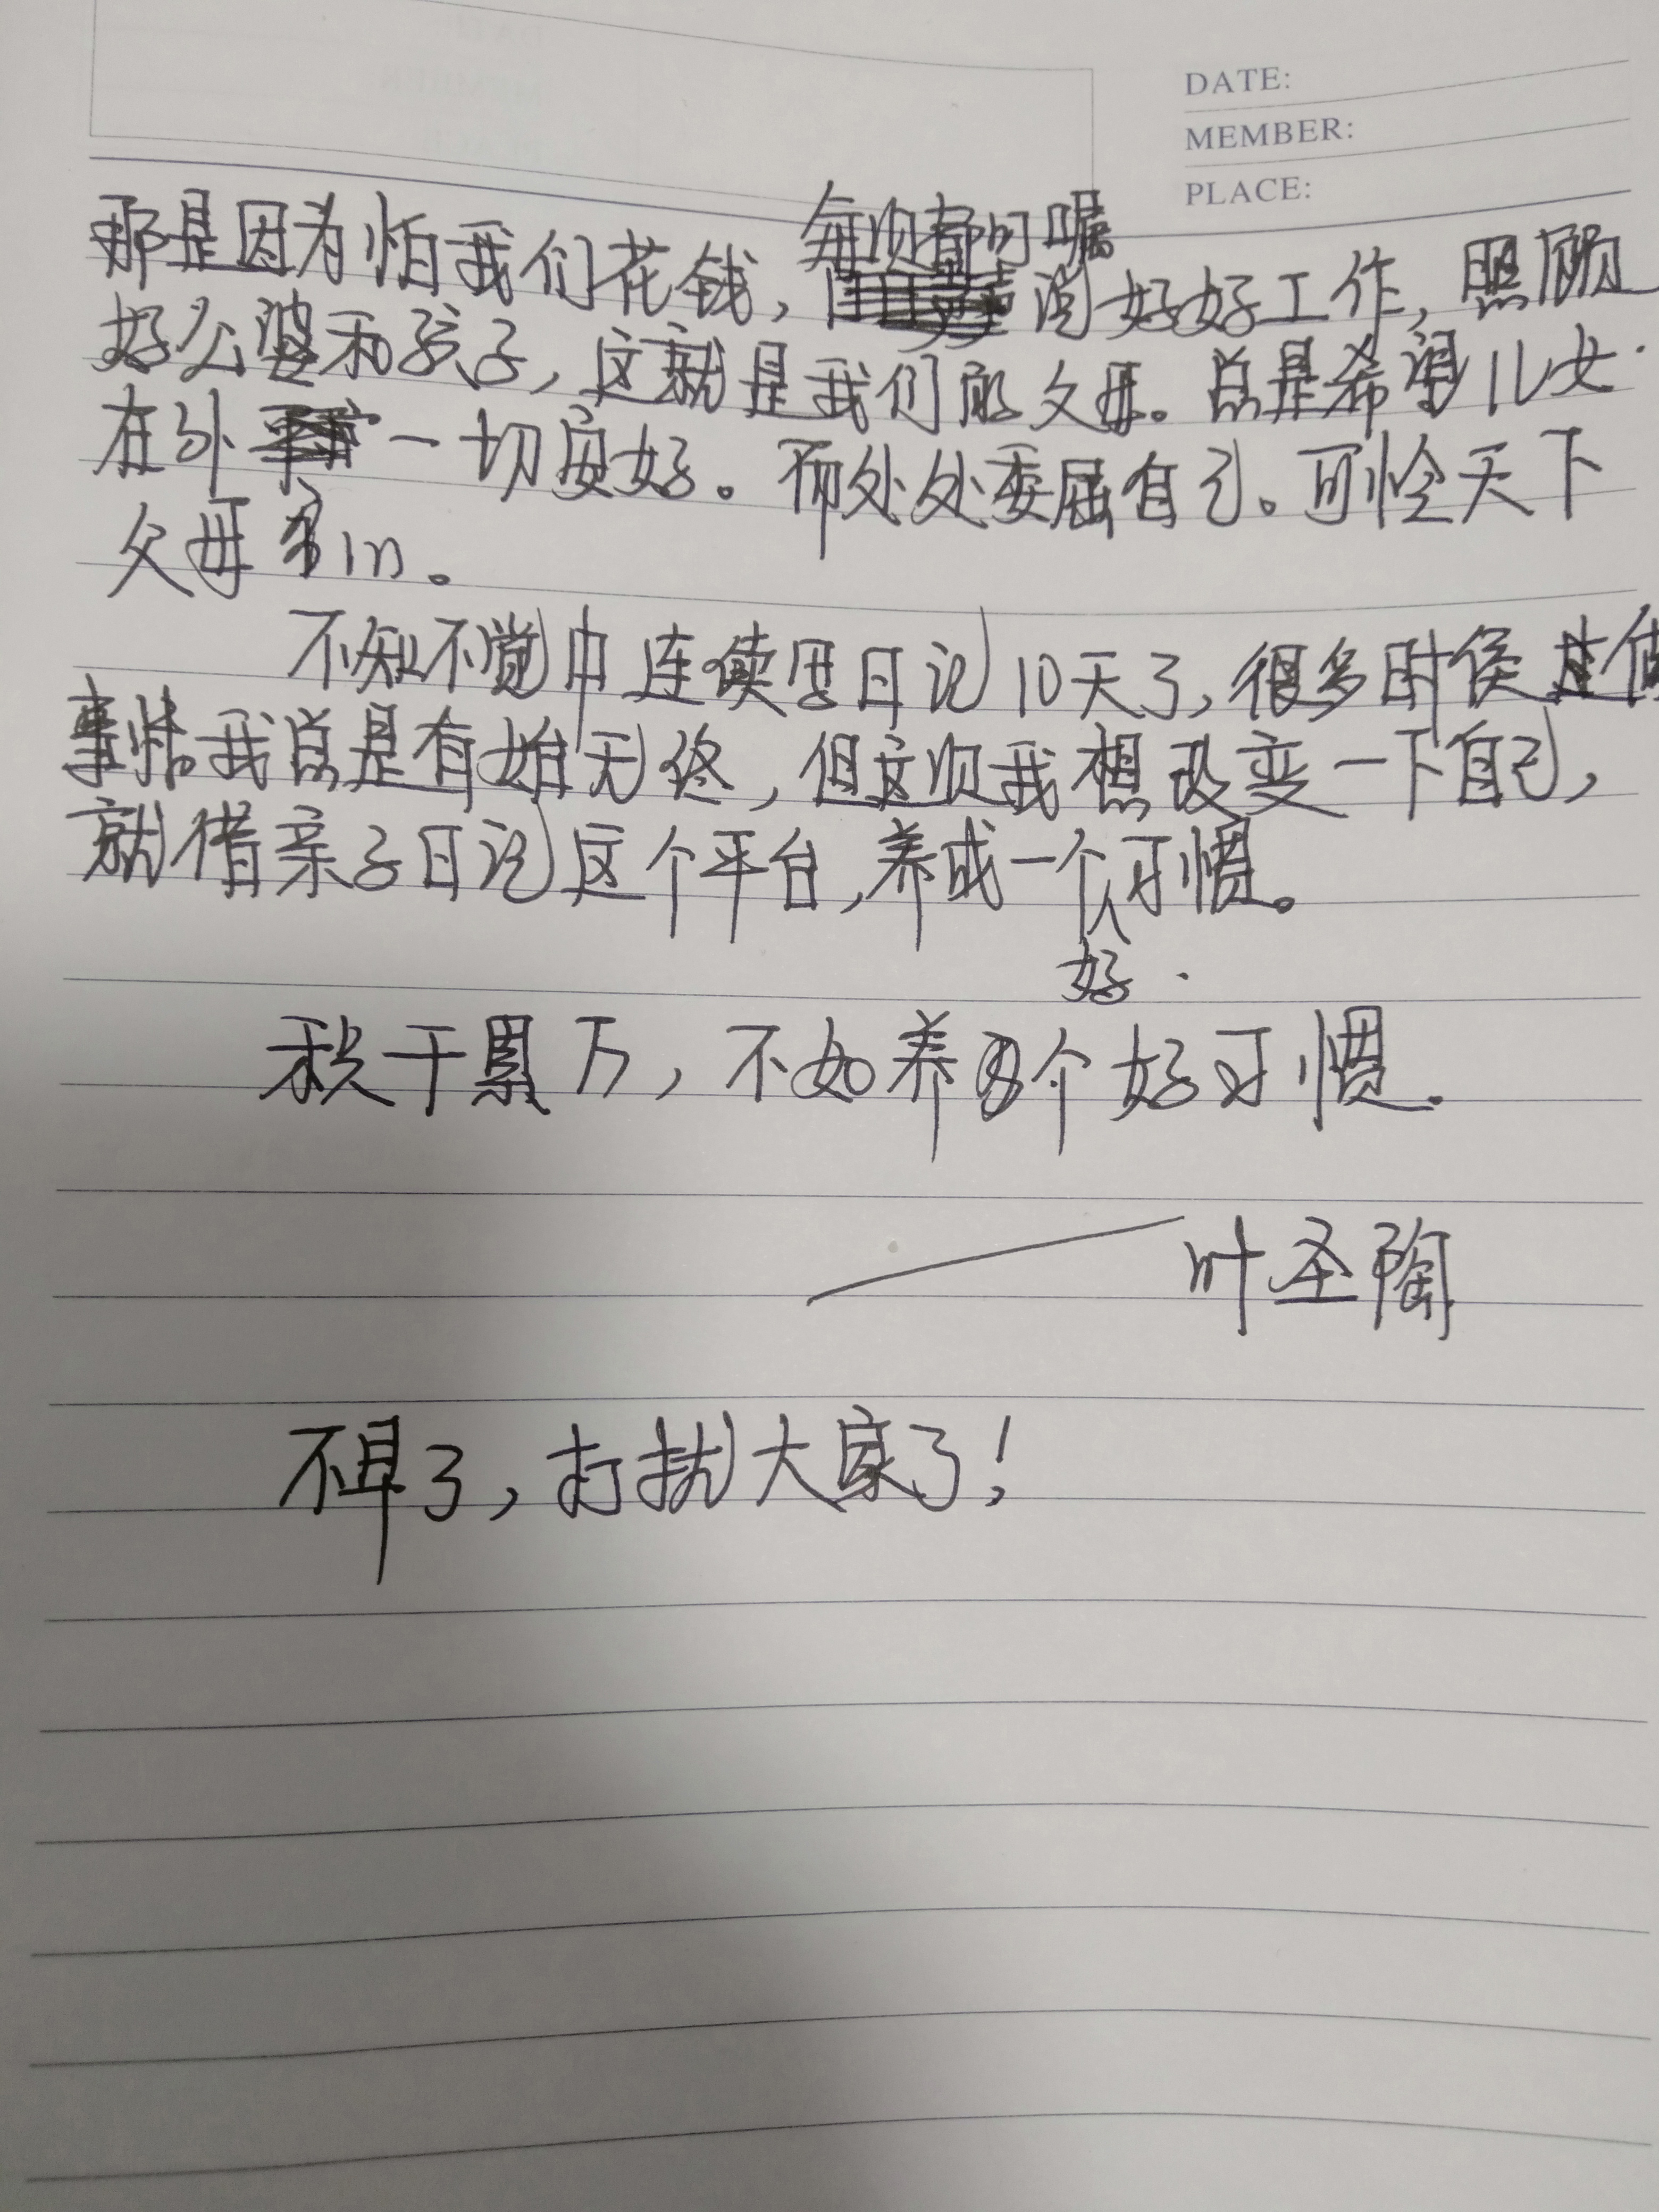 DATE:
MEMBER:
PLACE:
那是因为怕我们花钱,每次都叮嘱 好好工作,照顾
好公婆和孩子,这就是我们的父母。总是希望儿女
在外一切安好。而处处委屈自己。可怜天下
父母心in。
不知不觉中连续写日记10天了,很多时候
事情我总是有始无终,但这次我想改变一下自己,
就借亲子日记这个平台,养成一个好习惯。
积千累万,不如养个好习惯.
——叶圣陶
不早了,打扰大家了!